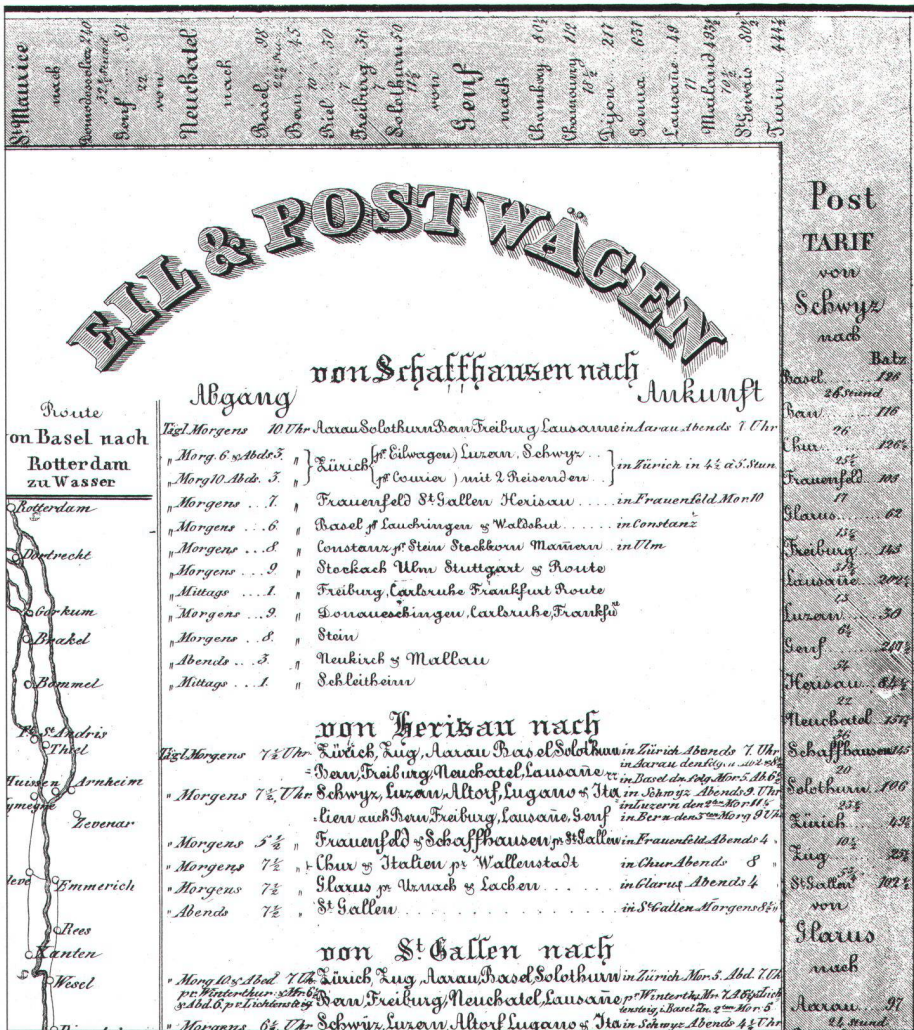 St Maurice
nach
Domodossola 240
32½ Stund
Genf 84
22
von
Neuchatel
nach
Basel 98
22½ Stund
Bern 45
10
Biel 30
7
Freiburg 36
7
Solothurn 50
11½
von
Genf
nach
Chambay 80½
Chamouny 112
18½
Dijon 217
Genua 631
Lausañe 49
11
Mailand 493½
70½
St Gervais 80½
Turin 444½
EIL & POSTWÄGEN
von Schaffhausen nach
Abgang Ankunft
Tägl. Morgens 10 Uhr Aarau Solothurn Bern Freiburg Lausanne in Aarau Abends 7 Uhr
„ Morg. 6 & Abds 3. „ Zürich (pr Eilwagen) Luzern, Schwyz
„ Morg 10. Abds. 3. „ (pr Courier) mit 2 Reisenden in Zürich in 4½ à 5. Stun
„ Morgens 7. „ Frauenfeld St Gallen Herisau in Frauenfeld Mor. 10
„ Morgens 6. „ Basel pr Lauchringen & Waldshut in Constanz
„ Morgens 8. „ Constanz pr Stein Steckborn Mamern in Ulm
„ Morgens 9. „ Stockach Ulm Stuttgart & Route
„ Mittags 1. „ Freiburg, Carlsruhe Frankfurt Route
„ Morgens 9. „ Donaueschingen, Carlsruhe, Frankfu
„ Morgens 8. „ Stein
„ Abends 3. „ Neukirch & Mallau
„ Mittags 1. „ Schleitheim
von Herisau nach
Tägl. Morgens 7½ Uhr Zürich, Zug, Aarau Basel Solothurn in Zürich Abends 7. Uhr
in Aarau den folg.
Bern, Freiburg, Neuchatel, Lausañe in Basel dn folg Mor. 5 Ab. 6
„ Morgens 7½ Uhr Schwyz, Luzern Altorf, Lugano & Ita in Schwyz Abends 9. Uhr
in Luzern den 2ten Mor 11½
lien auch Bern, Freiburg, Lausañe, Genf in Bern den 3ten Morg 9 Uhr
„ Morgens 5½ „ Frauenfeld & Schaffhausen pr St Gallen in Frauenfeld Abends 4
„ Morgens 7½ „ Chur & Italien pr Wallenstadt in Chur Abends 8 „
„ Morgens 7½ „ Glarus pr Uznach & Lachen in Glarus Abends 4
„ Abends 7½ „ St Gallen in St Gallen Morgens 8½
von St Gallen nach
„ Morg 10 & Abed 7 Uh Zürich, Zug, Aarau, Basel, Solothurn in Zürich Mor. 5. Abd. 7. Uh
pr Winterthur & Mr 6½
& Abd. 6. pr Lichtensteig Bern, Freiburg, Neuchatel, Lausañe pr Winterth. Mr 7. A 6 pr Lich
tensteig, i. Basel dn. 2ten Mor. 5
„ Morgens 6½ Uhr Schwyz, Luzern Altorf Lugano & Ita in Schwyz Abends 4½ Uhr
Route
on Basel nach
Rotterdam
zu Wasser
Rotterdam
Dortrecht
Gorkum
Brakel
Bommel
St Andris
Thiel
Huissen Arnheim
ymegen
Zevenar
leve
Emmerich
Rees
Xanten
Wesel
Post
TARIF
von
Schwyz
nach
Batz
Basel 126
26 Stund
Bern 116
26
Chur 126½
25½
Frauenfeld 103
17
Glarus 62
13½
Freiburg 143
31½
Lausañe 202½
13
Luzern 30
6½
Genf 247½
54
Herisau 84½
22
Neuchatel 157½
36
Schaffhausen 145
20
Solothurn 106
23½
Zürich 49½
10½
Zug 25½
5½
St Gallen 102½
von
Glarus
nach
Aarau 97
21 Stund